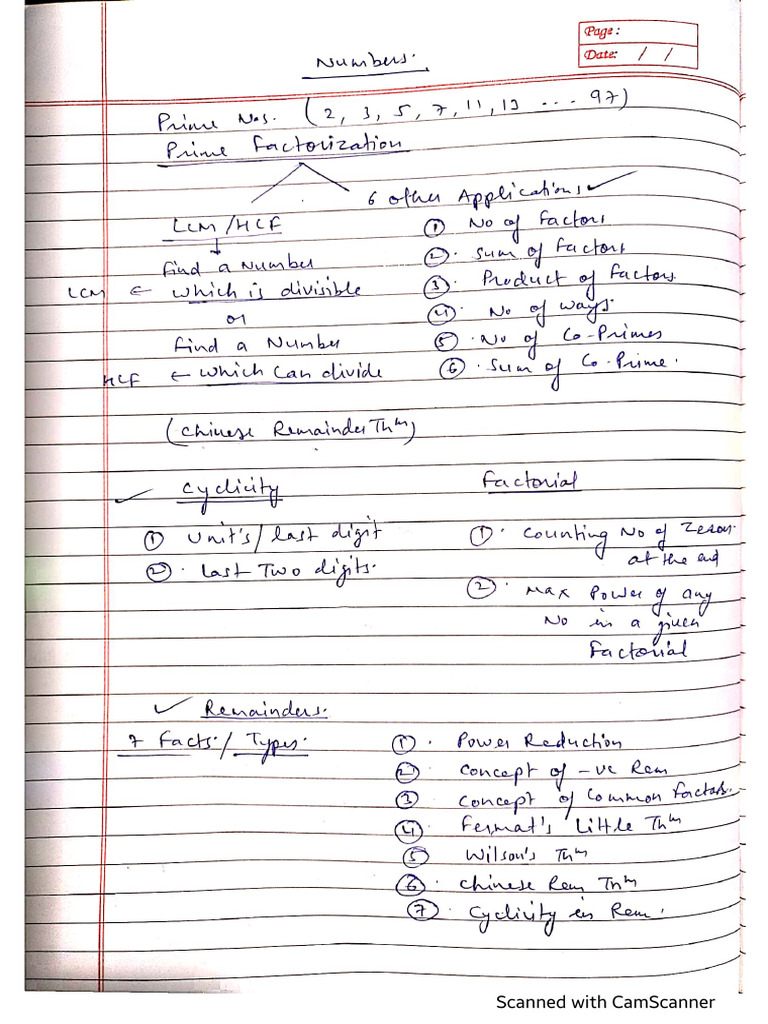 Page :
Date: / /
Numbers.
Prime Nos. (2, 3, 5, 7, 11, 13 ... 97)
Prime Factorization
6 other Applications ✓
LCM/HCF
① No of factors
② Sum of Factors
Find a Number
③ Product of Factors
LCM ← which is divisible
④ No of ways.
or
⑤ No of Co-Primes
Find a Number
⑥ Sum of Co-Prime.
HCF ← which can divide
(Chinese Remainder Thm)
✓ Cyclicity
Factorial
① Unit's/last digit
① Counting No of Zeros
at the end
② Last Two digits.
② Max Power of any
No in a given
Factorial
✓ Remainders.
7 Facts/Types.
① Power Reduction
② Concept of -ve Rem
③ Concept of Common Factors.
④ Fermat's Little Thm
⑤ Wilson's Thm
⑥ Chinese Rem Thm
⑦ Cyclicity in Rem.
Scanned with CamScanner